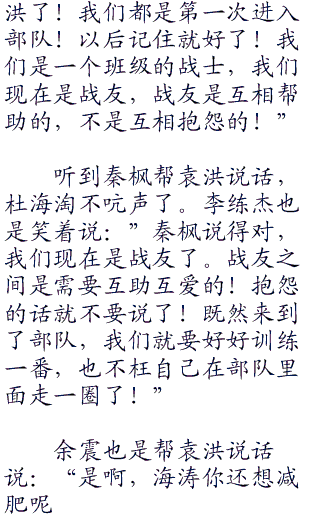 洪了！我们都是第一次进入
部队！以后记住就好了！我
们是一个班级的战士，我们
现在是战友，战友是互相帮
助的，不是互相抱怨的！”
听到秦枫帮袁洪说话，
杜海淘不吭声了。李练杰也
是笑着说：”秦枫说得对，
我们现在是战友了。战友之
间是需要互助互爱的！抱怨
的话就不要说了！既然来到
了部队，我们就要好好训练
一番，也不枉自己在部队里
面走一圈了！”
余震也是帮袁洪说话
说：“是啊，海涛你还想减
肥呢